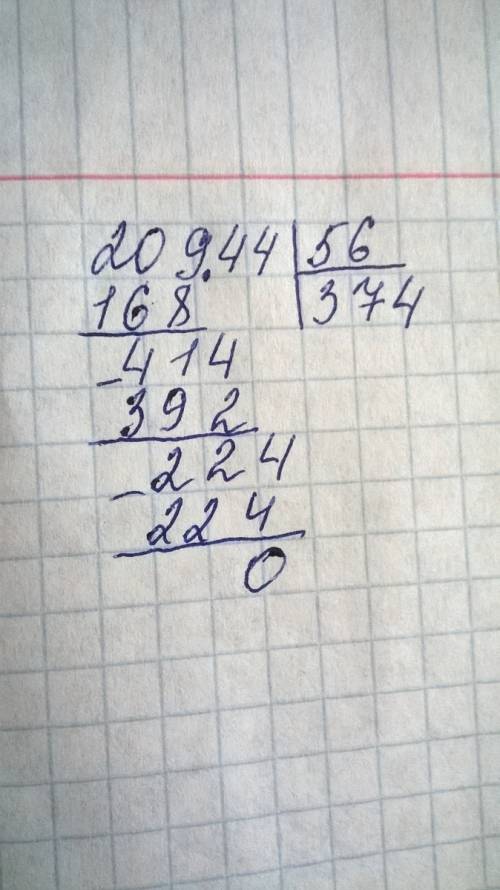 209.44 | 56
168 | 374
-414
392
-224
224
0